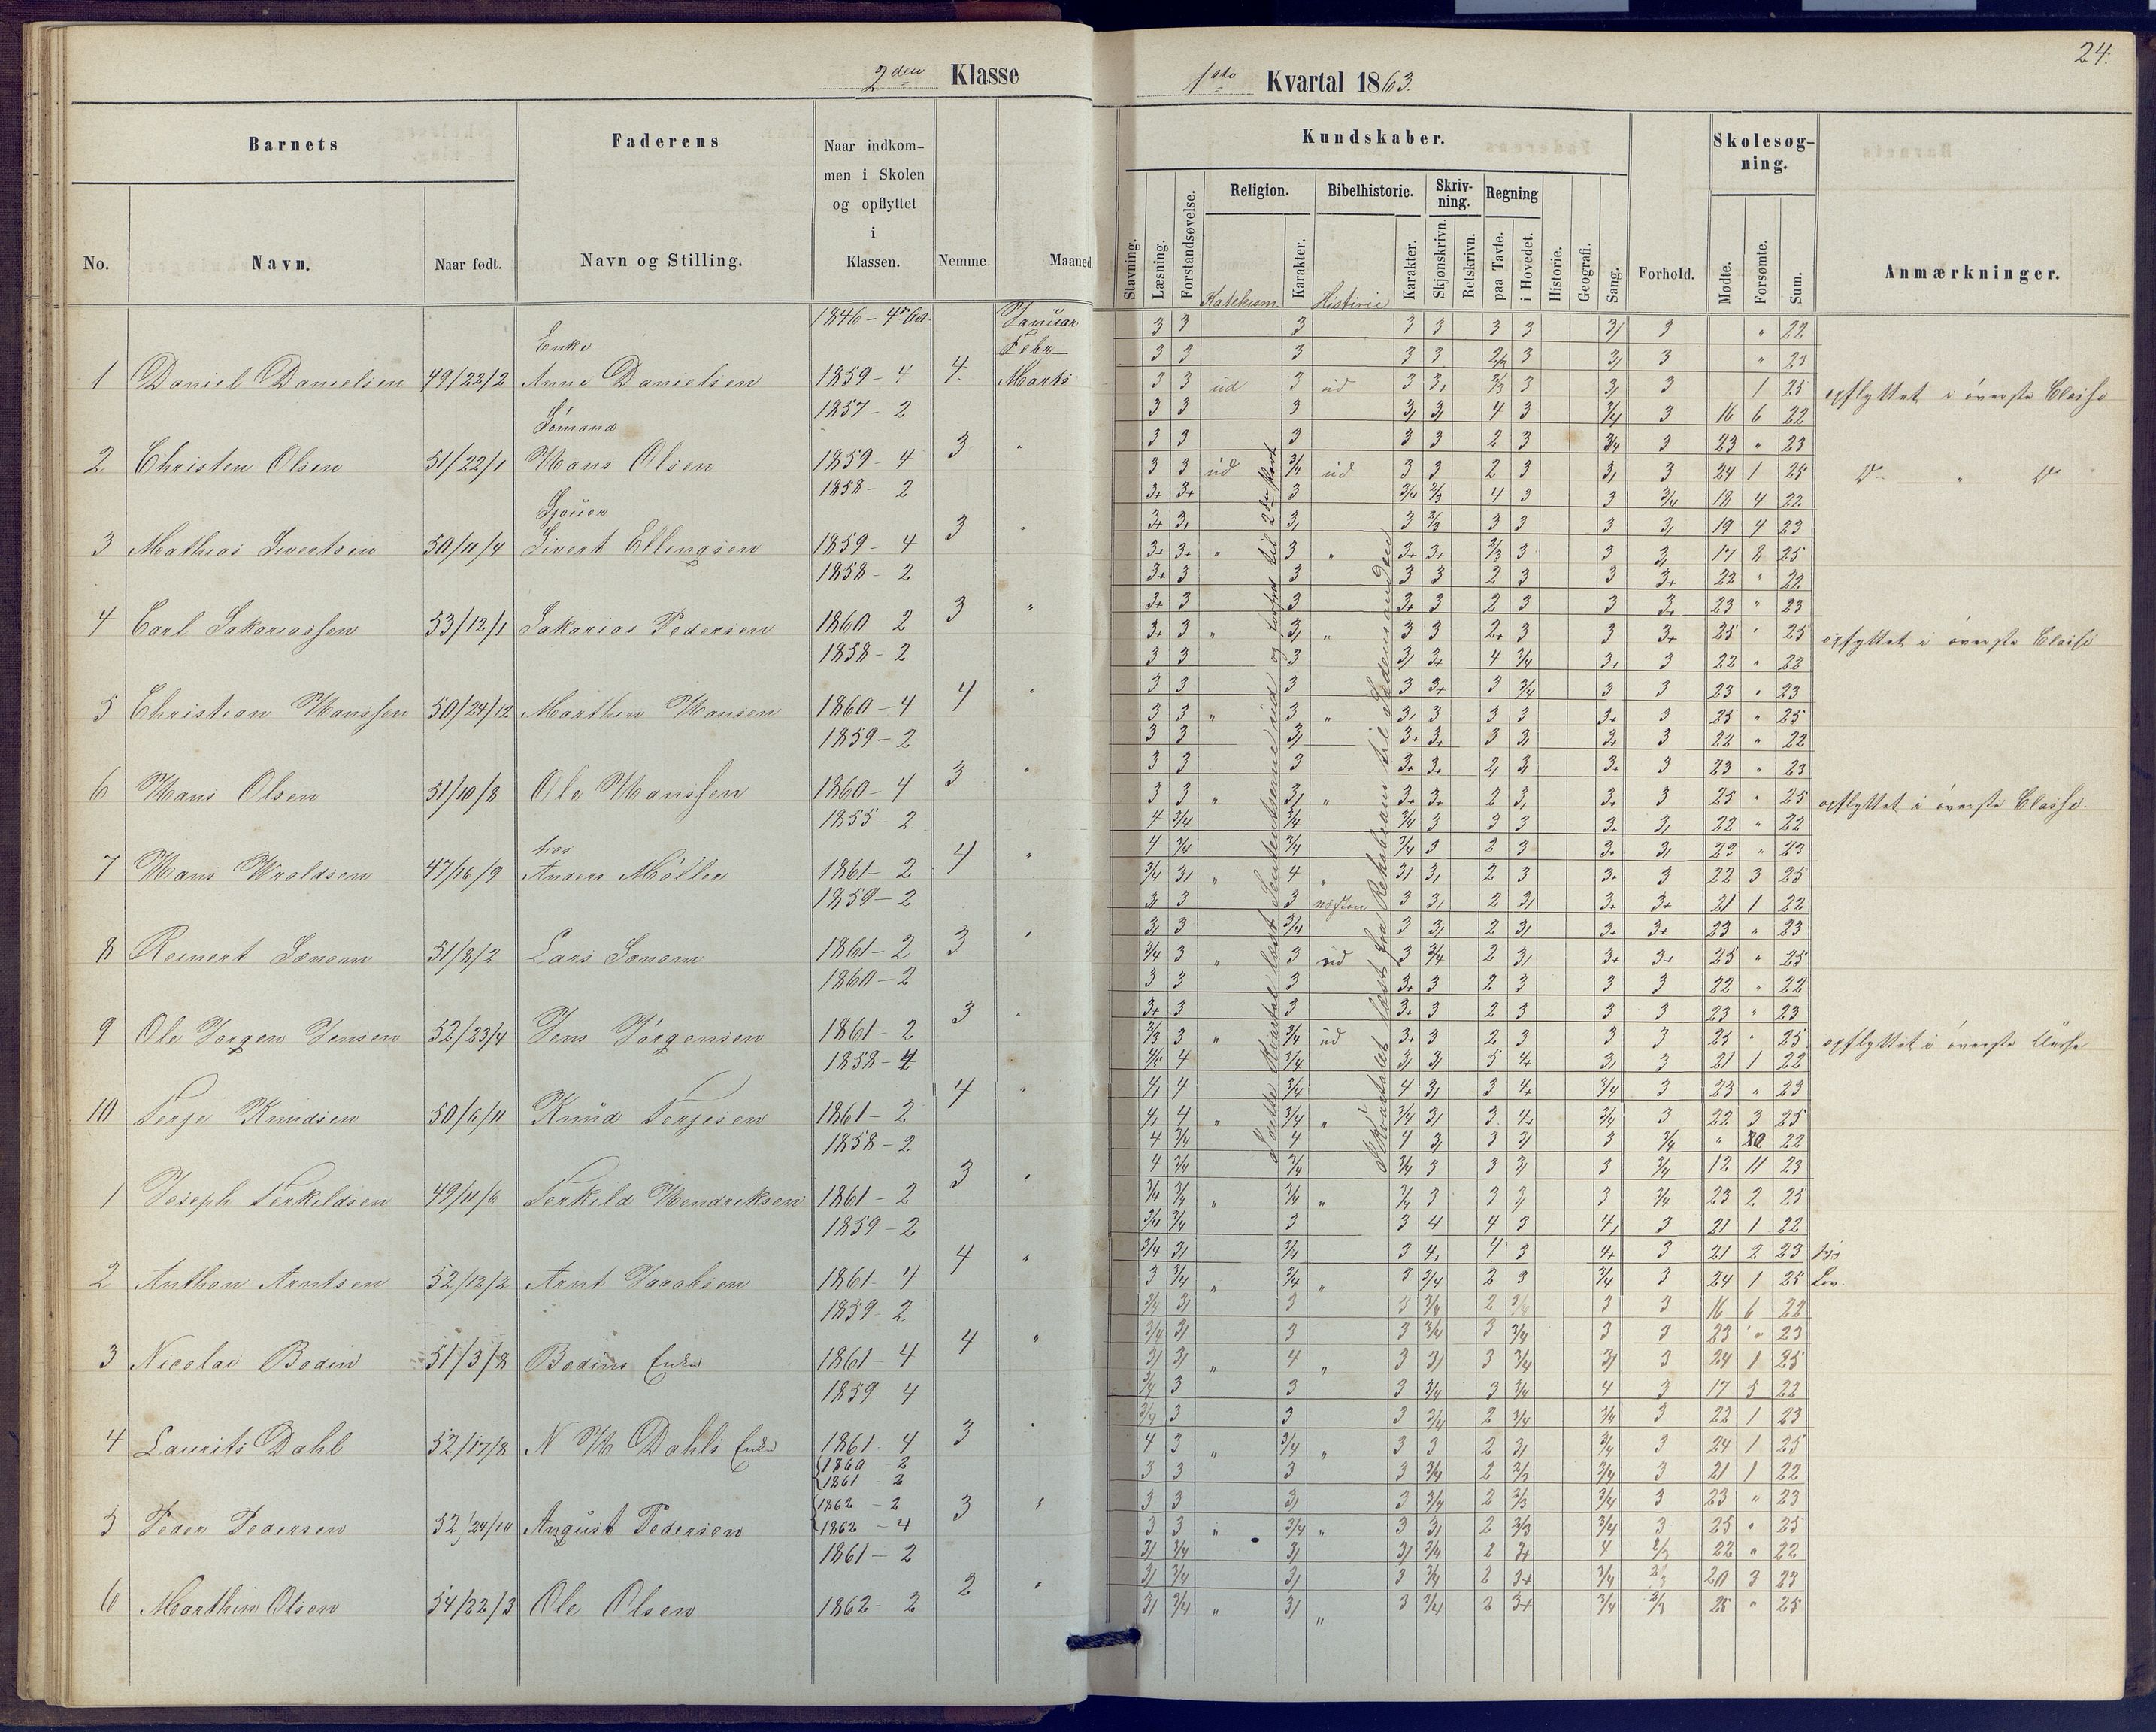 24.
2den Klasse
1ste Kvartal 1863.
Barnets
Faderens
Naar indkom-
men i Skolen
og opflyttet
i
Klassen.
Kundskaber.
Skolesøg-
ning.
Religion.
Bibelhistorie.
Skriv-
ning.
Regning
No.
Navn.
Naar født.
Navn og Stilling.
Nemme.
Maaned.
Stavning.
Læsning.
Forstandsøvelse.
Katekism.
Karakter.
Historie
Karakter.
Skjönskrivn.
Retskrivn.
paa Tavle.
i Hovedet.
Historie.
Geografi.
Sang.
Forhold.
Mødte.
Forsømte.
Sum.
Anmærkninger.
Januar 3 3 3 3 3 3 3 3/ 3 " 22
Enke Febr 3 3 3 3 3 3 3/ 3 " 23
1 Daniel Danielsen 49/22/2 Anne Danielsen 1859-4 4. Marts 3 3 ud 3 ud 3 3+ 2/3 3 3/ 3 1 25 opflyttet i øverste Classe
1857-2 3 3 3 3/ 3/ 4 3 3/4 3 16 6 22
Sømand 3 3 3 3 3 2 3 3/4 3 23 " 23
2 Christen Olsen 51/22/1 Hans Olsen 1859-4 3 " 3 3 ud 3/4 ud 3 3 2 3 3/ 3 24 1 25 Do " Do
1858-2 3+ 3+ 3 3/4 2/3 4 3 3 3/4 18 4 22
3+ 3+ 3/ 3 2/3 3 3 3 3/ 19 4 23
3 Mathias Sivertsen 50/11/4 Sivert Ellingsen 1859-4 3 " 3+ 3+ " 3 " 3+ 3+ 2/3 3 3 3/ 17 8 25
1858-2 3+ 3 3 3 3 2 3 3 3+ 22 " 22
3+ 3 3 3+ 3 2 3 3 3+ 23 " 23
4 Carl Sakariassen 53/12/1 Sakarias Pedersen 1860 2 3 " 3+ 3 " 3/ " 3 3 2+ 3 3 3+ 25 " 25 opflyttet i øverste Classe
1858-2 3 3 3 3/ 3+ 4 3/4 3+ 3 22 " 22
3 3 3 3 3+ 3 3/4 3 3 23 " 23
5 Christian Hanssen 50/24/12 Marthin Hansen 1860-4 4 " 3 3 " 3 " 3/ 3 3 3 3+ 3 25 " 25
1859-2 3 3 3/ 3+ 3+ 3 3/ 3+ 3 22 " 22
3 3 3 3+ 3+ 2/ 3/ 3+ 3 23 " 23
6 Hans Olsen 51/10/8 Ole Hanssen 1860-4 3 " 3 3 " 3/ " 3+ 3+ 2 3/ 3+ 3 25 " 25 opflyttet i øverste Classe.
1855-2. 4 3/4 3/4 3/4 3 3 3 3+ 3/ 22 " 22
hos 4 3/4 3/4 3/4 3 2 3 3+ 3/ 23 " 23
7 Hans Wroldsen 47/16/9 Anders Möller 1861-2 4 " 3/4 3/ " 4 " 3/ 3/ 2 3 3+ 3 22 3 25
1859-2 3/ 3 3 3 3/ 2 3/ 3+ 3+ 21 1 22
3/ 3 3/4 3 3/ 2 3/ 3+ 3+ 23 " 23
8 Reinert Sønom 51/8/2 Lars Sønom 1861-2 3 " 3/4 3 " 3 ud 3 3/4 2 3/ 3+ 3+ 25 " 25
1860-2 3 3 3 3+ 3 2 3 3 3 22 " 22
3+ 3 3 3+ 3 2 3 3 3 23 " 23
9 Ole Jørgen Jensen 52/23/4 Jens Jörgensen 1861-2 3 " 2/3 3 " 3/4 ud 3+ 3 2 3 3 3 25 " 25 opflyttet i øverste Classe
1858-4 4 3/4 3/ 3/ 5 4+ 3/ 3 21 1 22
4/ 4 3/4 4 3/ 3 4+ 3/4 3 23 " 23
10 Terje Knudsen 50/6/11 Knud Terjesen 1861-2 4 " 4/ 4 " 3/4 " 3/4 3/ 3 4+ 3/4 3 22 3 25
1858-2 4 3/4 4 4 3/ 3 3/ 3 3/4 " 22
4 3/4 3/4 3/4 3 3 3/ 3 3/4 12 11 23
1 Joseph Terkildsen 49/11/6 Terkild Hendriksen 1861-2 3 " 3/4 3/4 " 3/4 " 3/4 3 3 3/ 3 3/4 23 2 25
1859-2 3/4 3/4 3 3 4 4 3 4+ 3 21 1 22
3/4 3/ 3/4 3 4+ 4 3 4+ 3 21 2 23
2 Anthon Arntsen 52/12/2 Arnt Jacobsen 1861-4 4 " 3 3/4 " 3/4 " 3 3/4 2 3 3/4 3 24 1 25
1859-2 3/4 3/ 3 3 3/4 2 3/4 3 3 16 6 22
3/4 3/ 3 3 3/4 3 3/4 3 3 23 " 23
3 Nicolai Bodin 51/3/8 Bodins Enke 1861-4 4 " 3/ 3/ " 4 " 3 3/ 3 3/4 3/ 3 24 1 25
1859 4 3/4 3 3 3 3/4 3 3/4 4 3 17 5 22
3/4 3 3 3 3/4 2 3/4 3/4 3 22 1 23
4 Laurits Dahl 52/17/8 N H Dahls Enke 1861-4 3 " 4 3 " 3/4 " 3 3 2 3/ 3/4 3 24 1 25
1860-2
1861-2 3 3 3 3 3/4 2 2/3 3/4 3 21 1 22
1862-2 3 3 3/ 3 3/4 2 2/3 3/4 3 23 " 23
5 Peder Pedersen 52/24/10 August Pedersen 1862-4 3 " 3 3 " 3/4 " 3 3/ 2 2/3 3/4 3 25 " 25
1861-2 3/ 3/4 3/ 3/ 3/4 2 3+ 4 2/3 22 " 22
3/ 3/4 3/ 3 3/4 2 3+ 3/4 2/3 20 3 23
6 Marthin Olsen 54/22/3 Ole Olsen 1862-2 2 " 3/ 3/4 " 3/ " 3 3/4 2 3+ 3/4 2/3 25 " 25